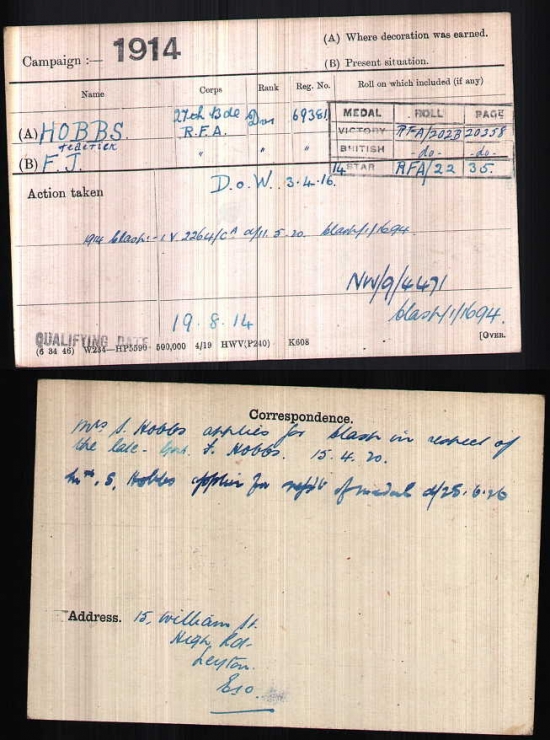 Campaign :— 1914
(A) Where decoration was earned.
(B) Present situation.
Name Corps Rank Reg. No. Roll on which included (if any)
(A) HOBBS. 27th Bde R.F.A. 69381
MEDAL ROLL PAGE
VICTORY RFA/202B 20258
BRITISH -do- -do-
14 STAR RFA/22 35.
(B) F. J. " " "
Action taken D.o.W. 3.4.16.
1914 Clasp:- IV 2264/ d/11.5.20. Clasp/1/1694.
NW/9/4491
Clasp/1/1694.
19.8.14
QUALIFYING DATE
(6 34 46) W234—HP5590 500,000 4/19 HWV(P240) K608
[OVER.
Correspondence.
Mrs S. Hobbs applies for Clasp in respect of
the late F. Hobbs. 15.4.20.
S. Hobbs applies for of medal d/25.6.26
Address. 15, William St.
High Rd.
Leyton.